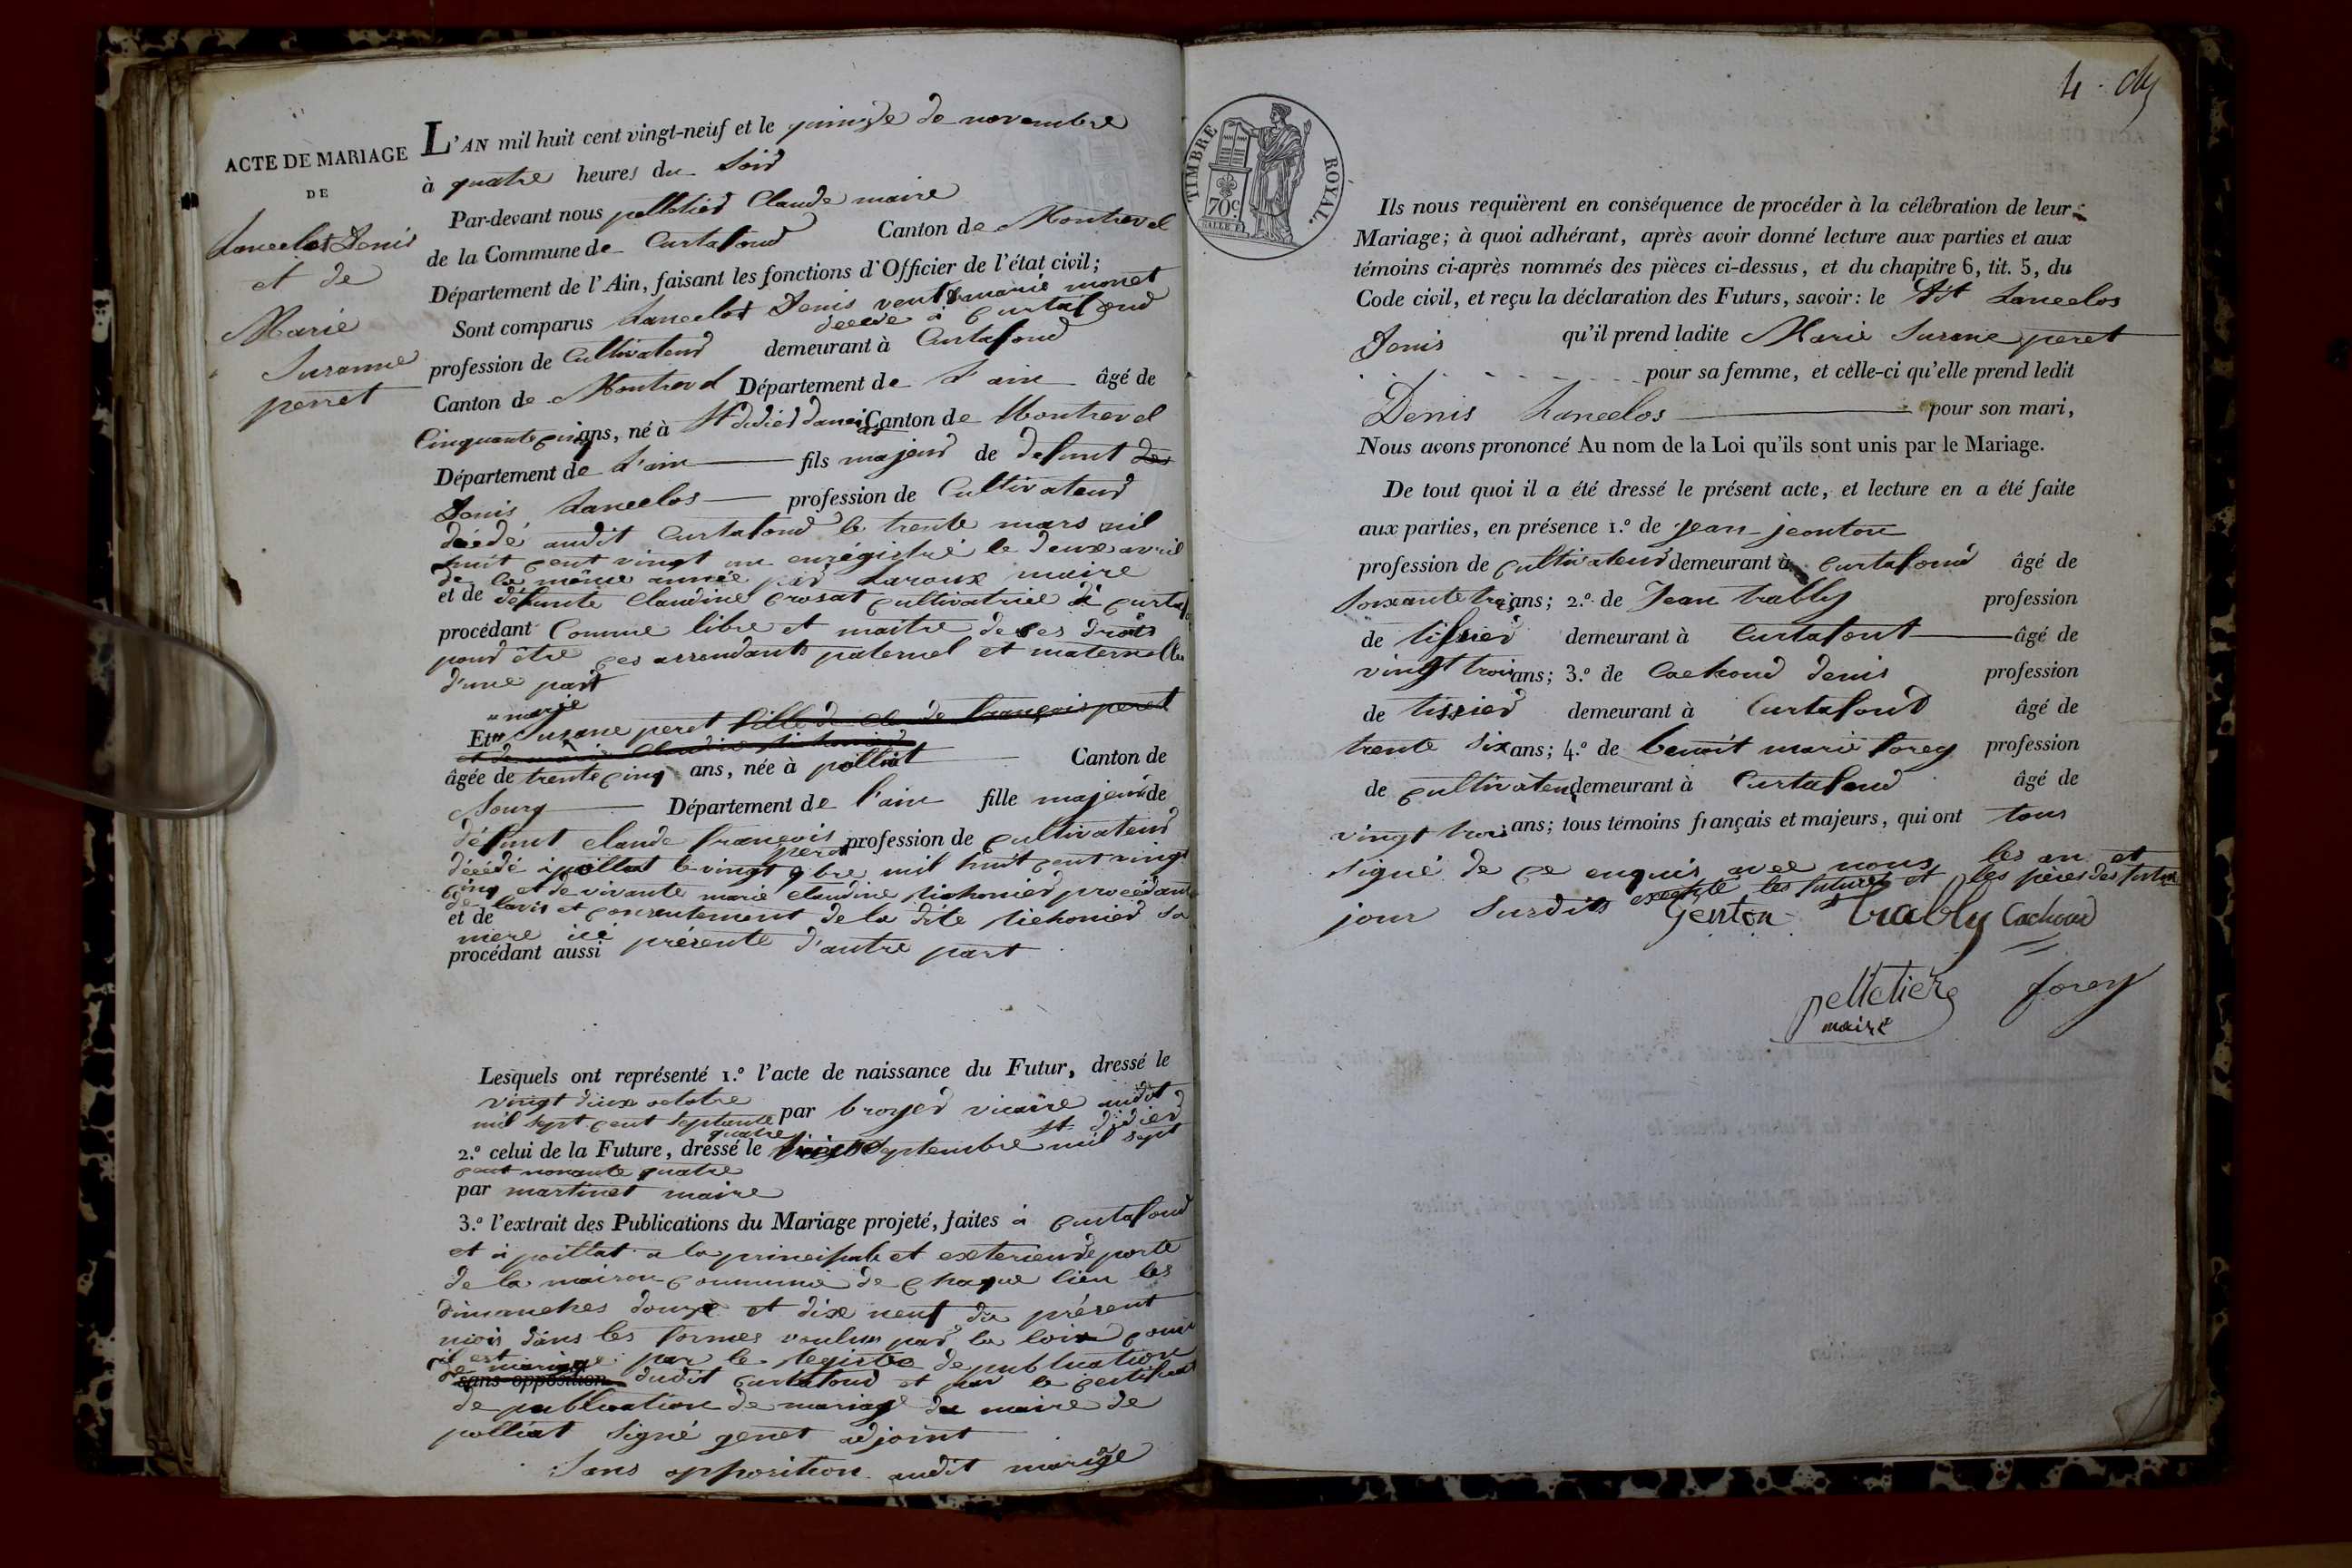 ACTE DE MARIAGE
DE
Lancelos Denis
et de
Marie
Susanne
perret
L'AN mil huit cent vingt-neuf et le quinze de novembre
à quatre heures du Soir
Par-devant nous pelletier Claude maire
de la Commune de Curtafond Canton de Montrevel
Département de l'Ain, faisant les fonctions d'Officier de l'état civil;
Sont comparus Lancelos Denis veuf marie monet
décéde à Curtafond
profession de Cultivateur demeurant à Curtafond
Canton de Montrevel Département de L'ain âgé de
Cinquante cinq ans, né à St didier Canton de Montrevel
Département de L'ain fils majeur de defunt
Denis Lancelos profession de Cultivateur
décédé audit Curtafond le trente mars mil
huit cent vingt un enrégistré le deux avril
de la même année par Laroux maire
et de défunte Claudine Crosat cultivatrice à
procédant Comme libre et maitre de ses droits
pour être ces assendants paternel et maternelles
d'une part
marie
Et Susane peret fille de de françois peret
âgée de trente cinq ans, née à polliat Canton de
Bourg Département de l'ain fille majeur de
défunt claude françois profession de cultivateur
peret
décédé à polliat le vingt 9bre mil huit cent vingt
cinq et de vivante marie claudine tichonier procédant
de l'avis et consentement de la dite tichonier sa
et de
mere ici présente d'autre part
procédant aussi
Lesquels ont représenté 1.° l'acte de naissance du Futur, dressé le
vingt deux octobre
mil sept cent septante par broyer vicaire audit
quatre St didier
2.° celui de la Future, dressé le septembre mil sept
cent nonante quatre
par martinet maire
3.° l'extrait des Publications du Mariage projeté, faites à curtafond
et à poillat a la principale et exterieur porte
de la maison commune de chaque lieu les
dimanches douze et dix neuf du présent
mois dans les formes voulues par la loix
il est par le registre de publication
de mariage
sans opposition dudit curtafond et par le certificat
de publication de mariage du maire de
polliat Signé genet adjoint
Sans opposition audit mariage
4
TIMBRE ROYAL.
70c
Ils nous requièrent en conséquence de procéder à la célébration de leur
Mariage; à quoi adhérant, après avoir donné lecture aux parties et aux
témoins ci-après nommés des pièces ci-dessus, et du chapitre 6, tit. 5, du
Code civil, et reçu la déclaration des Futurs, savoir: le dit Lancelos
Denis qu'il prend ladite Marie Susane peret
pour sa femme, et celle-ci qu'elle prend ledit
Denis Lancelos pour son mari,
Nous avons prononcé Au nom de la Loi qu'ils sont unis par le Mariage.
De tout quoi il a été dressé le présent acte, et lecture en a été faite
aux parties, en présence 1.° de jean jeonton
profession de cultivateur demeurant à curtafond âgé de
Soixante trois ans; 2.° de Jean trably profession
de tissier demeurant à Curtafont âgé de
vingt trois ans; 3.° de Cachoud denis profession
de tissier demeurant à Curtafond âgé de
trente six ans; 4.° de benoit marie forey profession
de cultivateur demeurant à Curtafond âgé de
vingt trois ans; tous témoins français et majeurs, qui ont tous
signé de ce enquis avec nous les an et
excepté les futures et les pères des futur
jour Surdits Genton trably Cachoud
pelletier forey
maire